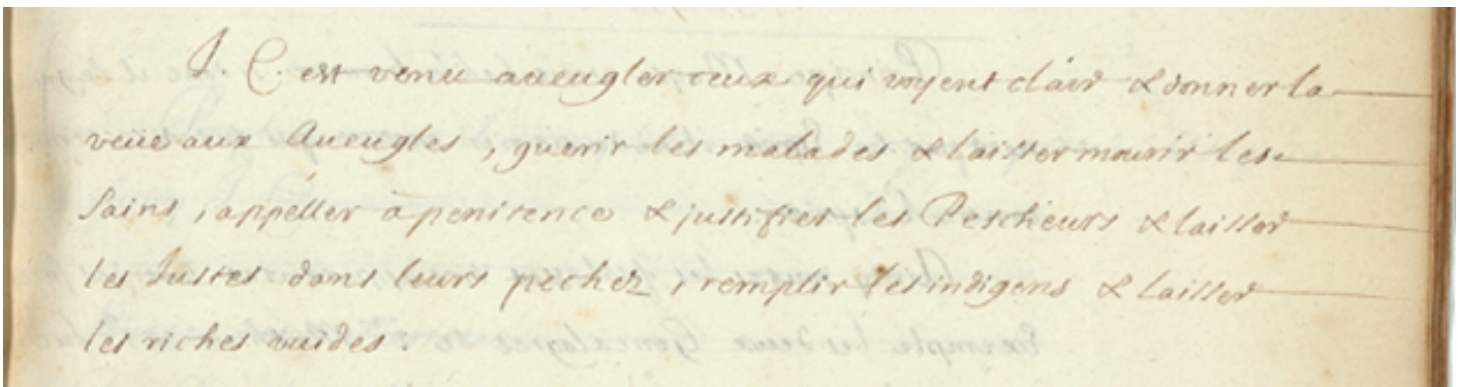 J. C. est venu aueugler ceux qui voyent clair & donner la
veüe aux Aueugles, guerir les malades & laisser mourir les
Sains, appeller à penitence & justifier les Pescheurs & laisser
les Justes dans leurs pechez, remplir les indigens & laisser
les riches vuides.